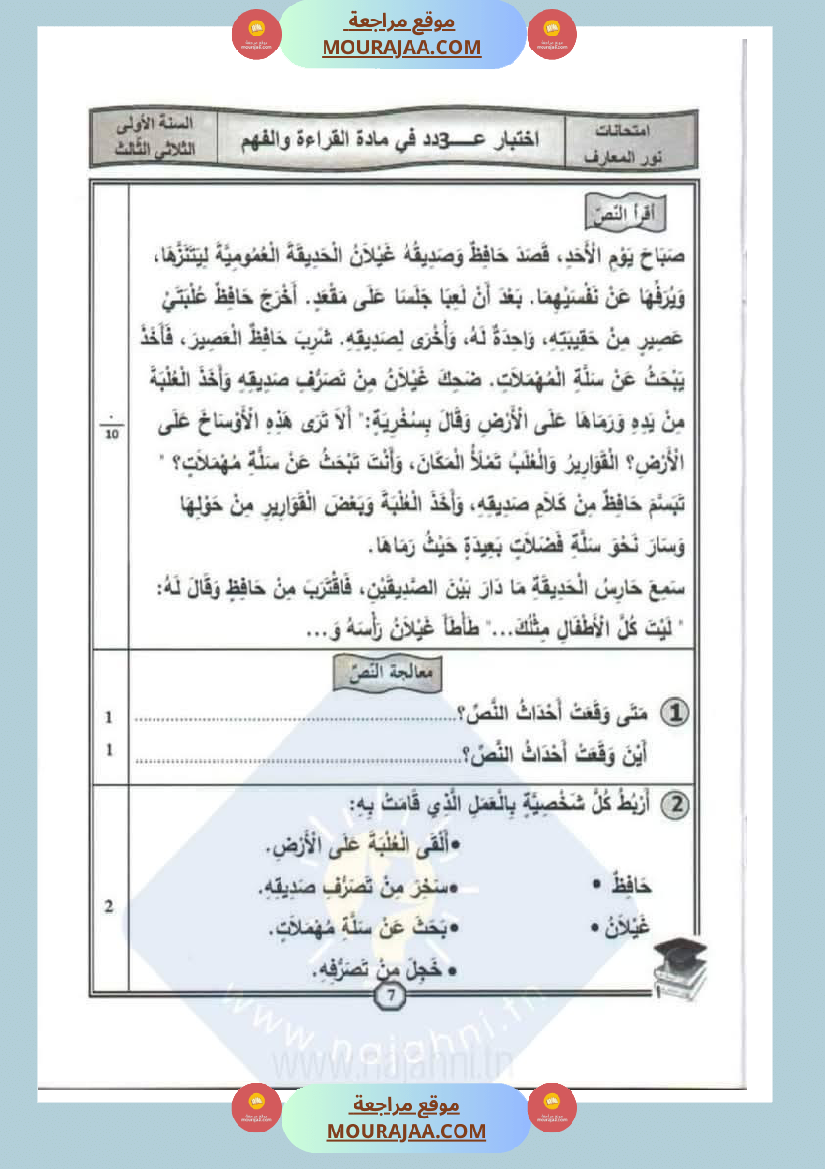 موقع مراجعة
MOURAJAA.COM
امتحانات
نور المعارف
اختبار عـــ3دد في مادة القراءة والفهم
السنة الأولى
الثلاثي الثالث
أقرأ النَّصّ
صَبَاحَ يَوْمِ الْأَحَدِ، قَصَدَ حَافِظٌ وَصَدِيقُهُ غَيْلَانُ الْحَدِيقَةَ الْعُمُومِيَّةَ لِيَتَنَزَّهَا،
وَيُرَفِّهَا عَنْ نَفْسَيْهِمَا. بَعْدَ أَنْ لَعِبَا جَلَسَا عَلَى مَقْعَدٍ. أَخْرَجَ حَافِظٌ عُلْبَتَيْ
عَصِيرٍ مِنْ حَقِيبَتِهِ، وَاحِدَةٌ لَهُ، وَأُخْرَى لِصَدِيقِهِ. شَرِبَ حَافِظٌ الْعَصِيرَ، فَأَخَذَ
يَبْحَثُ عَنْ سَلَّةِ الْمُهْمَلَاتِ. ضَحِكَ غَيْلَانُ مِنْ تَصَرُّفِ صَدِيقِهِ وَأَخَذَ الْعُلْبَةَ
مِنْ يَدِهِ وَرَمَاهَا عَلَى الْأَرْضِ وَقَالَ بِسُخْرِيَةٍ:" أَلَا تَرَى هَذِهِ الْأَوْسَاخَ عَلَى
الْأَرْضِ؟ الْقَوَارِيرُ وَالْعُلَبُ تَمْلَأُ الْمَكَانَ، وَأَنْتَ تَبْحَثُ عَنْ سَلَّةِ مُهْمَلَاتٍ؟ "
تَبَسَّمَ حَافِظٌ مِنْ كَلَامِ صَدِيقِهِ، وَأَخَذَ الْعُلْبَةَ وَبَعْضَ الْقَوَارِيرِ مِنْ حَوْلِهَا
وَسَارَ نَحْوَ سَلَّةِ فَضَلَاتٍ بَعِيدَةٍ حَيْثُ رَمَاهَا.
سَمِعَ حَارِسُ الْحَدِيقَةِ مَا دَارَ بَيْنَ الصَّدِيقَيْنِ، فَاقْتَرَبَ مِنْ حَافِظٍ وَقَالَ لَهُ:
" لَيْتَ كُلَّ الْأَطْفَالِ مِثْلُكَ..." طَأْطَأَ غَيْلَانُ رَأْسَهُ وَ...
10
معالجة النّصّ
1 مَتَى وَقَعَتْ أَحْدَاثُ النَّصِّ؟ 1
أَيْنَ وَقَعَتْ أَحْدَاثُ النَّصِّ؟ 1
2 أَرْبُطُ كُلَّ شَخْصِيَّةٍ بِالْعَمَلِ الَّذِي قَامَتْ بِهِ:
•أَلْقَى الْعُلْبَةَ عَلَى الْأَرْضِ.
حَافِظٌ • •سَخِرَ مِنْ تَصَرُّفِ صَدِيقِهِ.
2
غَيْلَانُ • •بَحَثَ عَنْ سَلَّةِ مُهْمَلَاتٍ.
• خَجِلَ مِنْ تَصَرُّفِهِ.
7
www.najahni.tn
www.najahni.tn
موقع مراجعة
MOURAJAA.COM